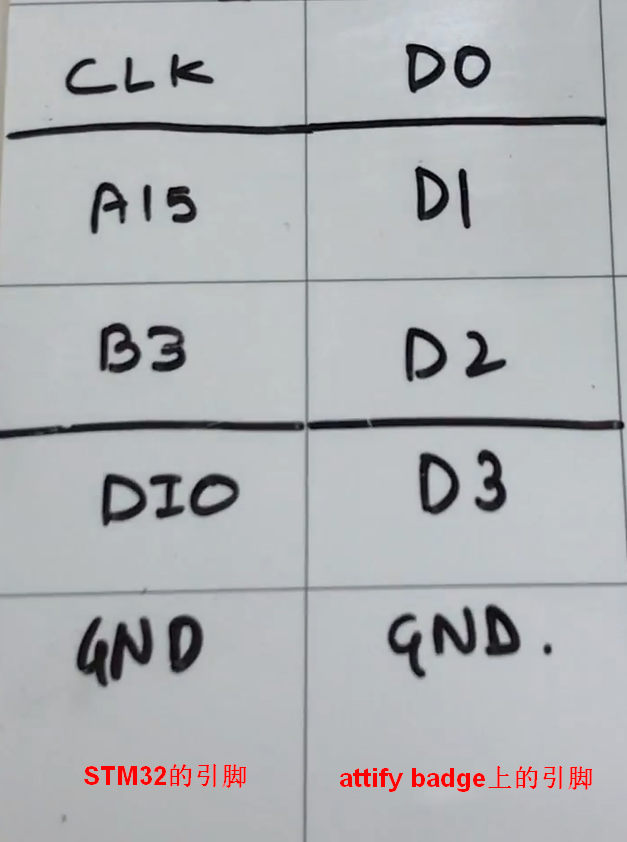 CLK D0
A15 D1
B3 D2
DIO D3
GND GND.
STM32的引脚 attify badge上的引脚